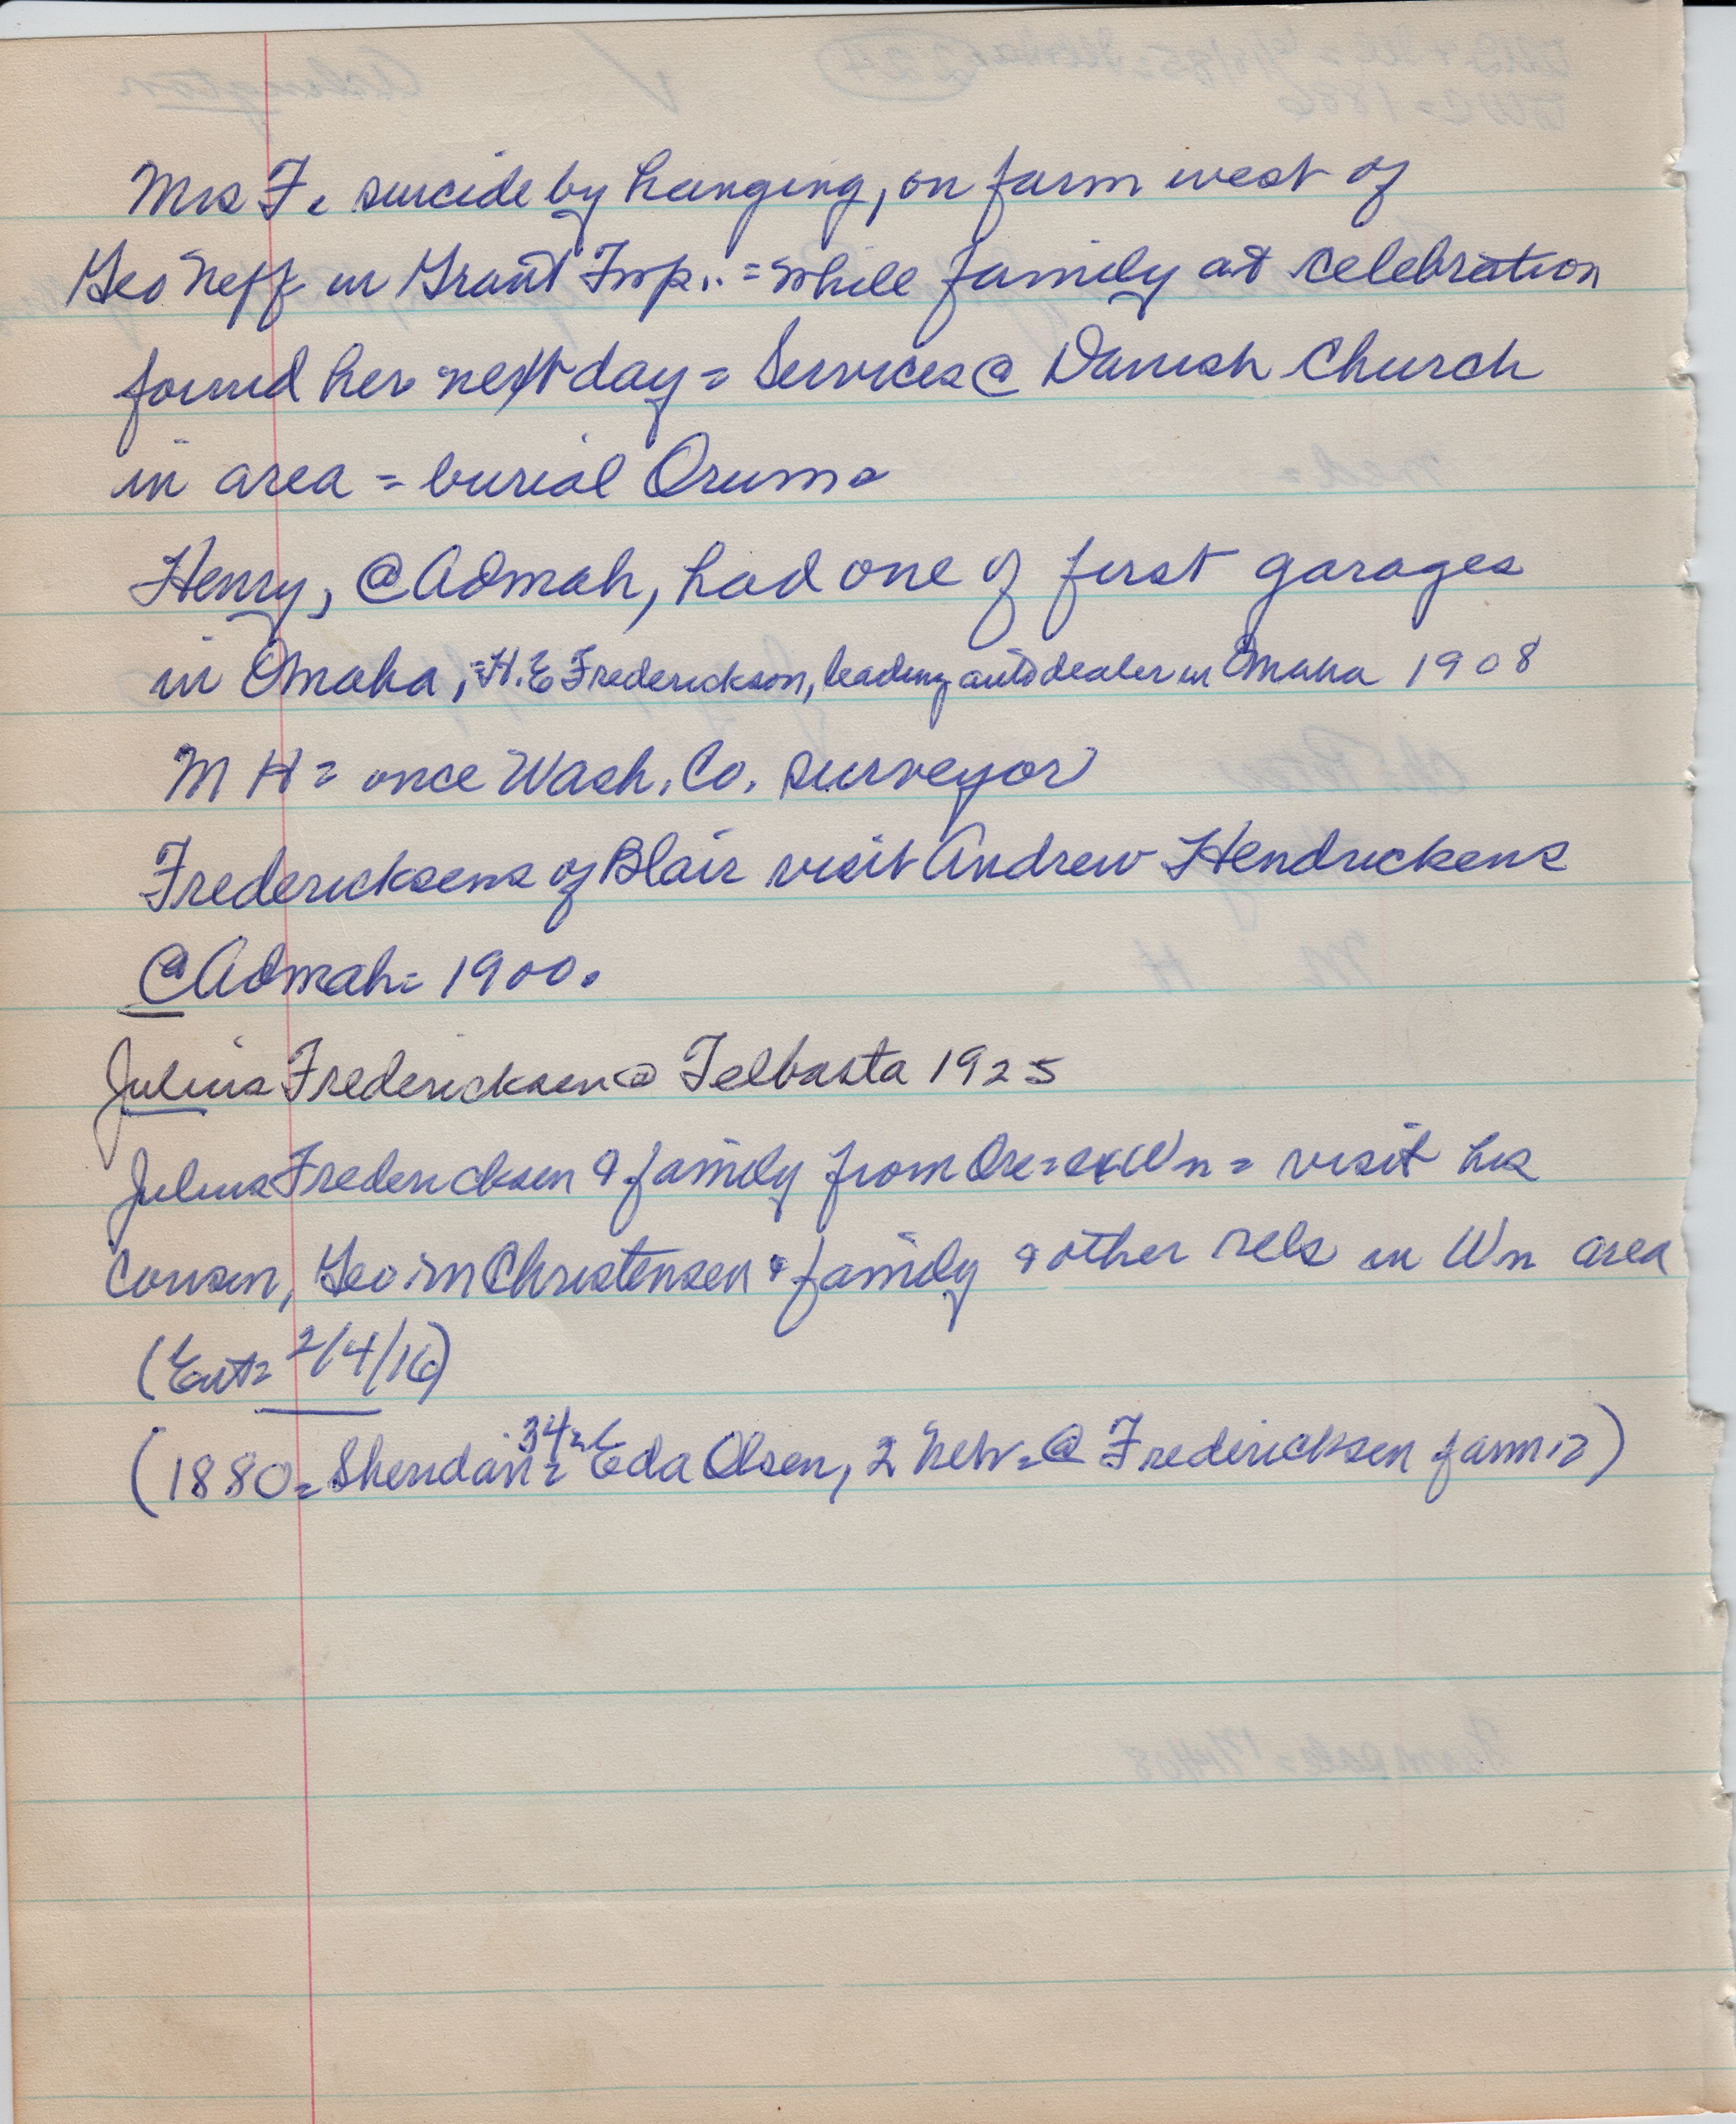 Mrs F. suicide by hanging, on farm west of
Geo Neff in Grant Twp.. = While family at celebration
found her next day = Services @ Danish Church
in area = burial Orum =
Henry, @ Admah, had one of first garages
in Omaha, = H.E Frederickson, leading auto dealer in Omaha 1908
M H = once Wash. Co. surveyor
Fredericksens of Blair visit Andrew Hendrickens
@ Admah = 1900.
Julius Fredericksen @ Telbasta 1925
Julius Fredericksen & family from Ore = ex Wn = visit his
Cousin, Geo M Christensen & family & other rels in Wn area
(Ent = 2/4/16)
(1880 = Sheridan = 34 Eda Olsen, 2 Neb = @ Fredericksen farm